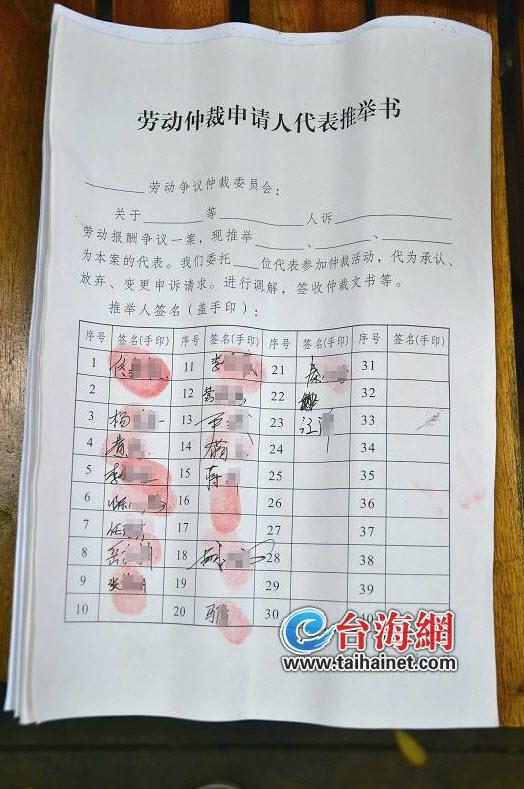 劳动仲裁申请人代表推举书
______劳动争议仲裁委员会：
关于______等________人诉________
劳动报酬争议一案，现推举______、______、________
为本案的代表。我们委托____位代表参加仲裁活动，代为承认、
放弃、变更申诉请求。进行调解，签收仲裁文书等。
推举人签名（盖手印）：
序号 签名(手印) 序号 签名(手印) 序号 签名(手印) 序号 签名(手印)
1 11 李 21 秦 31
2 12 黄 22 32
3 杨 13 23 汪 33
4 黄 14 24 34
5 15 蒋 25 35
6 16 26 36
7 任 17 27 37
8 18 28 38
9 张 19 29 39
10 20 30 40
台海網
www.taihainet.com